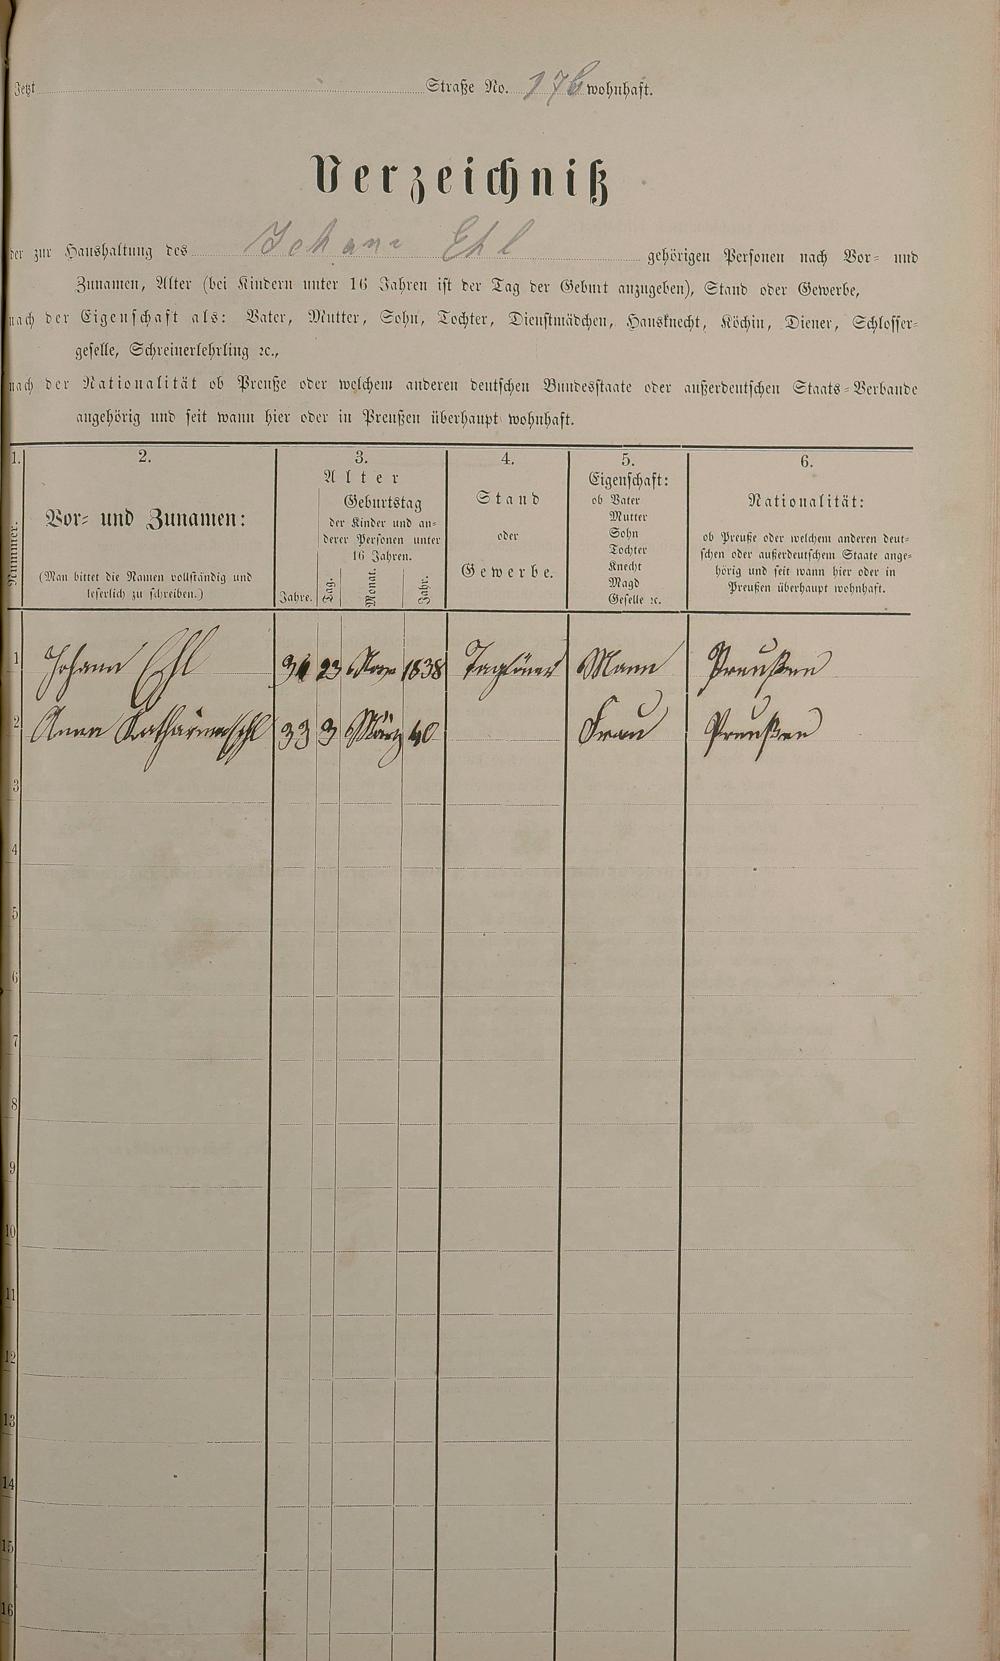 Jetzt Straße No. 176 wohnhaft.
Verzeichniß
der zur Haushaltung des Johann Ehl gehörigen Personen nach Vor- und
Zunamen, Alter (bei Kindern unter 16 Jahren ist der Tag der Geburt anzugeben), Stand oder Gewerbe,
nach der Eigenschaft als: Vater, Mutter, Sohn, Tochter, Dienstmädchen, Hausknecht, Köchin, Diener, Schlosser-
geselle, Schreinerlehrling ꝛc.,
nach der Nationalität ob Preuße oder welchem anderen deutschen Bundesstaate oder außerdeutschen Staats-Verbande
angehörig und seit wann hier oder in Preußen überhaupt wohnhaft.
1.
Nummer.
2.
Vor- und Zunamen:
(Man bittet die Namen vollständig und
leserlich zu schreiben.)
3.
Alter
Geburtstag
der Kinder und an-
derer Personen unter
16 Jahren.
Jahre. Tag. Monat. Jahr.
4.
Stand
oder
Gewerbe.
5.
Eigenschaft:
ob Vater
Mutter
Sohn
Tochter
Knecht
Magd
Geselle ꝛc.
6.
Nationalität:
ob Preuße oder welchem anderen deut-
schen oder außerdeutschem Staate ange-
hörig und seit wann hier oder in
Preußen überhaupt wohnhaft.
1 Johann Ehl 23 Nov 1838 Taglöner Mann Preußen
2 Anna Katharina Ehl 33 3 März 40 Frau Preußen
3
4
5
6
7
8
9
10
11
12
13
14
15
16